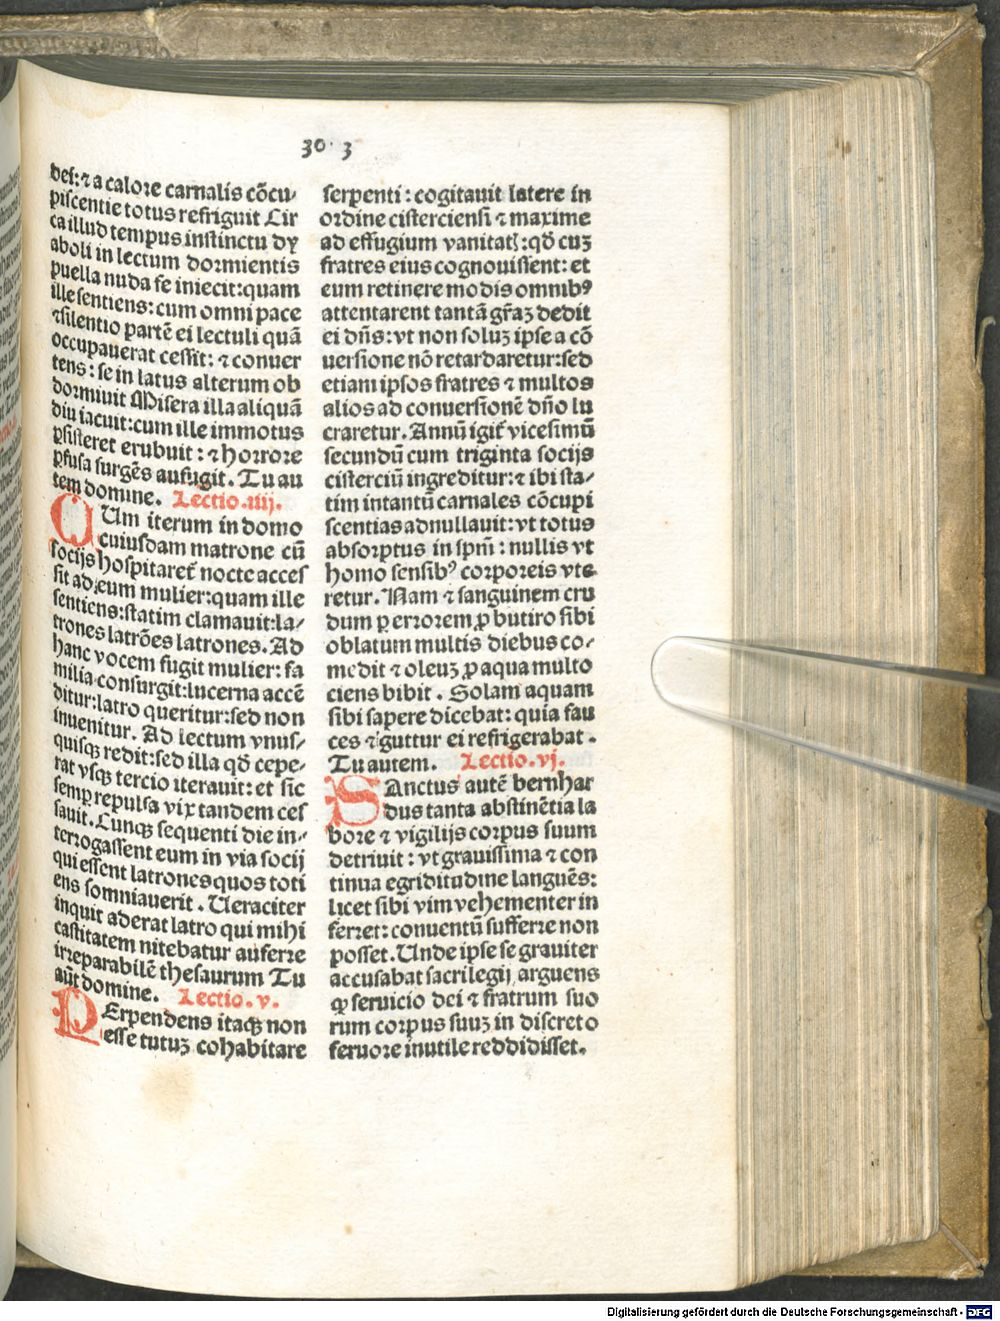 30 · 3
dei: ⁊ a calore carnalis cōcu-
piscentie totus refriguit Cir
ca illud tempus instinctu dy
aboli in lectum dormientis
puella nuda se iniecit: quam
ille sentiens: cum omni pace
⁊ silentio partē ei lectuli quā
occupauerat cessit: ⁊ conuer
tens: se in latus alterum ob
dormiuit Misera illa aliquā
diu iacuit: cum ille immotus
ꝑsisteret erubuit: ⁊ horrore
ꝑfusa surgēs aufugit. Tu au
tem domine. Lectio .iiij.
CUm iterum in domo
cuiusdam matrone cū
socijs hospitaret᷑ nocte acces
sit ad eum mulier: quam ille
sentiens: statim clamauit: la-
trones latrōes latrones. Ad
hanc vocem fugit mulier: fa
milia consurgit: lucerna accē
ditur: latro queritur: sed non
inuenitur. Ad lectum vnus-
quisqꝫ redit: sed illa qđ cepe-
rat vsqꝫ tercio iterauit: et sic
semꝑ repulsa vix tandem ces
sauit. Cunqꝫ sequenti die in-
terrogassent eum in via socij
qui essent latrones quos toti
ens somniauerit. Ueraciter
inquit aderat latro qui mihi
castitatem nitebatur auferre
irreparabilē thesaurum Tu
aūt domine. Lectio .v.
PErpendens itaqꝫ non
esse tutuꝫ cohabitare
serpenti: cogitauit latere in
ordine cisterciensi ⁊ maxime
ad effugium vanitatꝭ: qđ cuꝫ
fratres eius cognouissent: et
eum retinere modis omnibꝰ
attentarent tantā gr̄aꝫ dedit
ei dn̄s: vt non soluꝫ ipse a cō
uersione nō retardaretur: sed
etiam ipsos fratres ⁊ multos
alios ad conuersionē dn̄o lu
craretur. Annū igit᷑ vicesimū
secundū cum triginta socijs
cisterciū ingreditur: ⁊ ibi sta-
tim intantū carnales cōcupi
scentias adnullauit: vt totus
absorptus in spm̄: nullis vt
homo sensibꝰ corporeis vte
retur. Nam ⁊ sanguinem cru
dum ꝑ errorem ꝓ butiro sibi
oblatum multis diebus co-
medit ⁊ oleuꝫ ꝓ aqua multo
ciens bibit. Solam aquam
sibi sapere dicebat: quia fau
ces ⁊ guttur ei refrigerabat.
Tu autem. Lectio .vj.
SAnctus autē bernhar
dus tanta abstinētia la
bore ⁊ vigilijs corpus suum
detriuit: vt grauissima ⁊ con
tinua egritudine languēs:
licet sibi vim vehementer in
ferret: conuentū sufferre non
posset. Unde ipse se grauiter
accusabat sacrilegij arguens
ꝙ seruicio dei ⁊ fratrum suo
rum corpus suuꝫ in discreto
feruore inutile reddidisset.
Digitalisierung gefördert durch die Deutsche Forschungsgemeinschaft - DFG